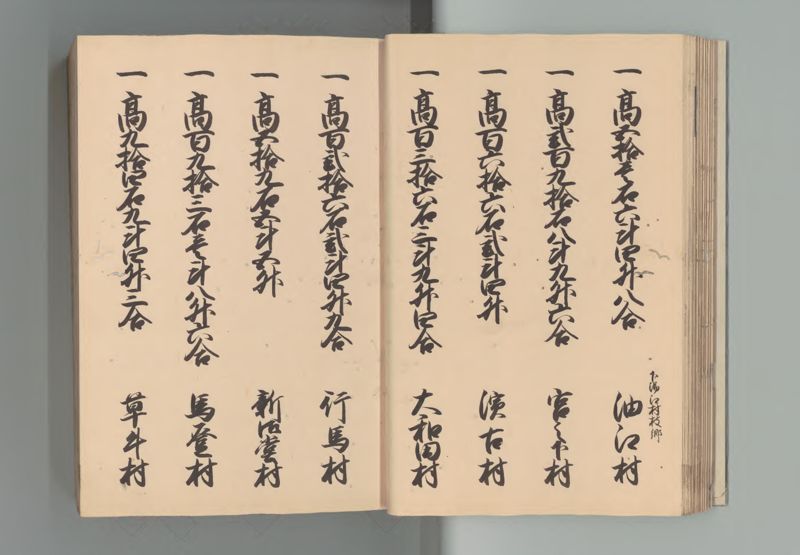 一 高五拾壱石六斗四升八合
下油江村枝郷
油江村
一 高弐百九拾石八斗九升六合 宮下村
一 高百六拾六石弐斗四升 濱古村
一 高百三拾六石三斗九升四合 大和田村
一 高百弐拾六石弐斗四升九合 行馬村
一 高五拾九石五斗五升 新御堂村
一 高百九拾三石壱斗八升六合 馬登村
一 高九拾四石九斗四升三合 草牛村